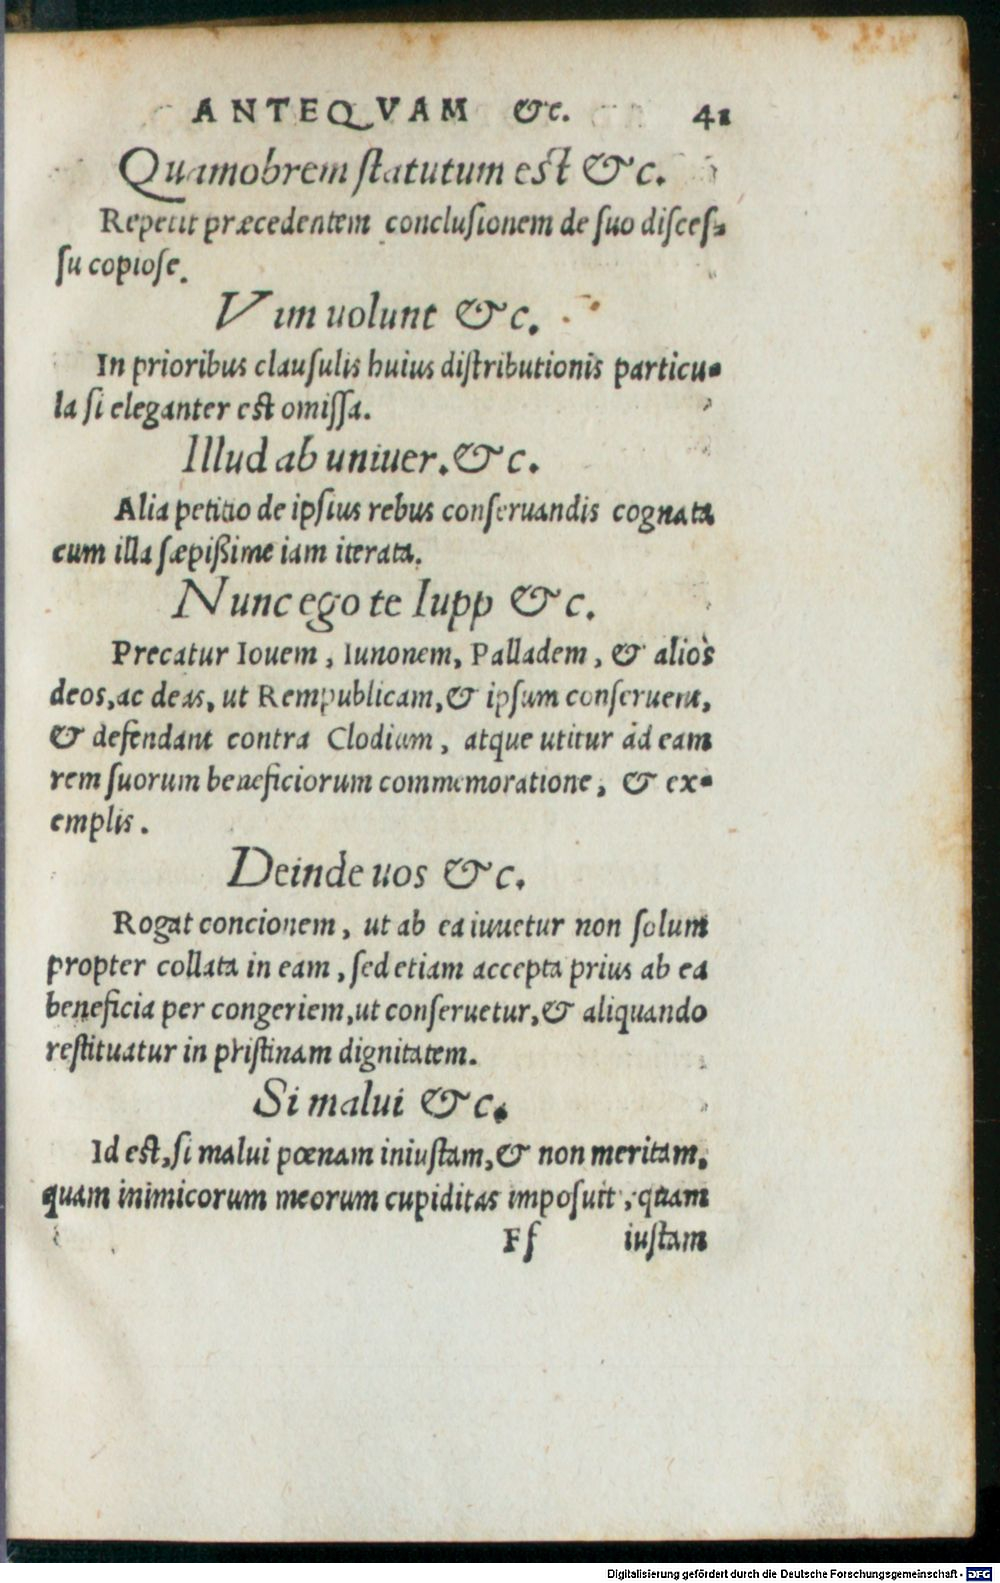 ANTEQVAM &c. 41
Quamobrem statutum est &c.
Repetit præcedentem conclusionem de suo disces-
su copiose.
Vim uolunt &c.
In prioribus clausulis huius distributionis particu-
la si eleganter est omissa.
Illud ab uniuer. &c.
Alia petitio de ipsius rebus conseruandis cognata
cum illa sæpißime iam iterata.
Nunc ego te Iupp &c.
Precatur Iouem, Iunonem, Palladem, & alios
deos, ac deas, ut Rempublicam, & ipsum conseruent,
& defendant contra Clodium, atque utitur ad eam
rem suorum beneficiorum commemoratione, & ex-
emplis.
Deinde uos &c.
Rogat concionem, ut ab ea iuuetur non solum
propter collata in eam, sed etiam accepta prius ab ea
beneficia per congeriem, ut conseruetur, & aliquando
restituatur in pristinam dignitatem.
Si malui &c.
Id est, si malui pœnam iniustam, & non meritam,
quam inimicorum meorum cupiditas imposuit, quam
Ff iustam
Digitalisierung gefördert durch die Deutsche Forschungsgemeinschaft - DFG